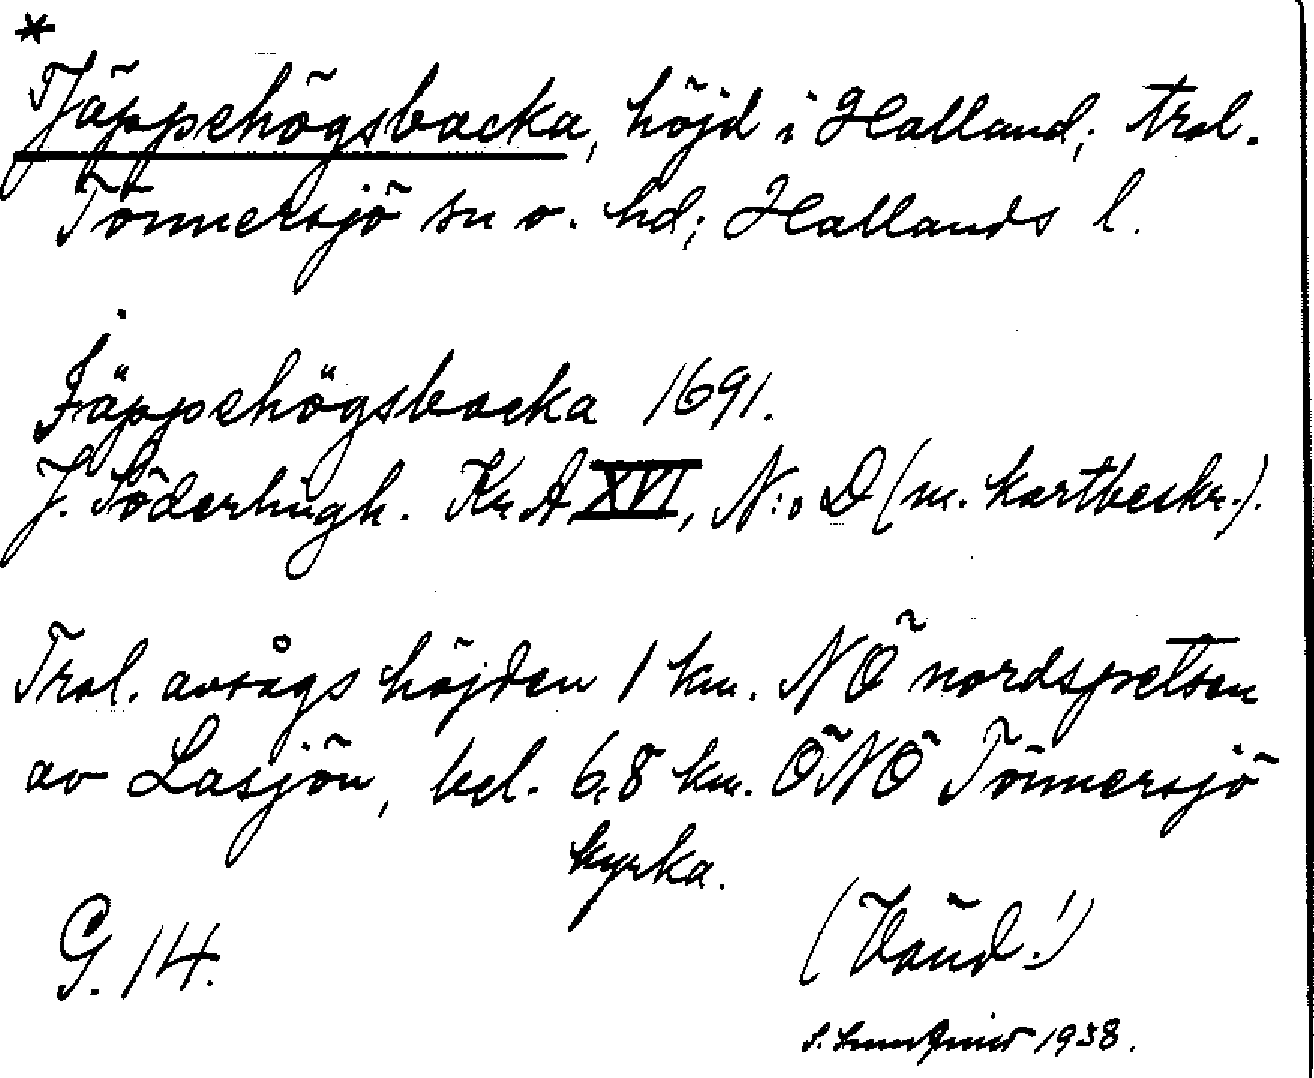 *
Jäppehögsbacka, höjd i Halland; trol.
Tönnersjö sn o. hd; Hallands l.
Jäppehögsbacka 1691.
J. Söderlingh. Kr. A. XVI, N:o D (m. kartbeskr.).
Trol. avsågs höjden 1 km. NÖ nordspetsen
av Lasjön, bel. 6,8 km. ÖNÖ Tönnersjö
kyrka.
G. 14.
(Vänd!)
S. 1938.